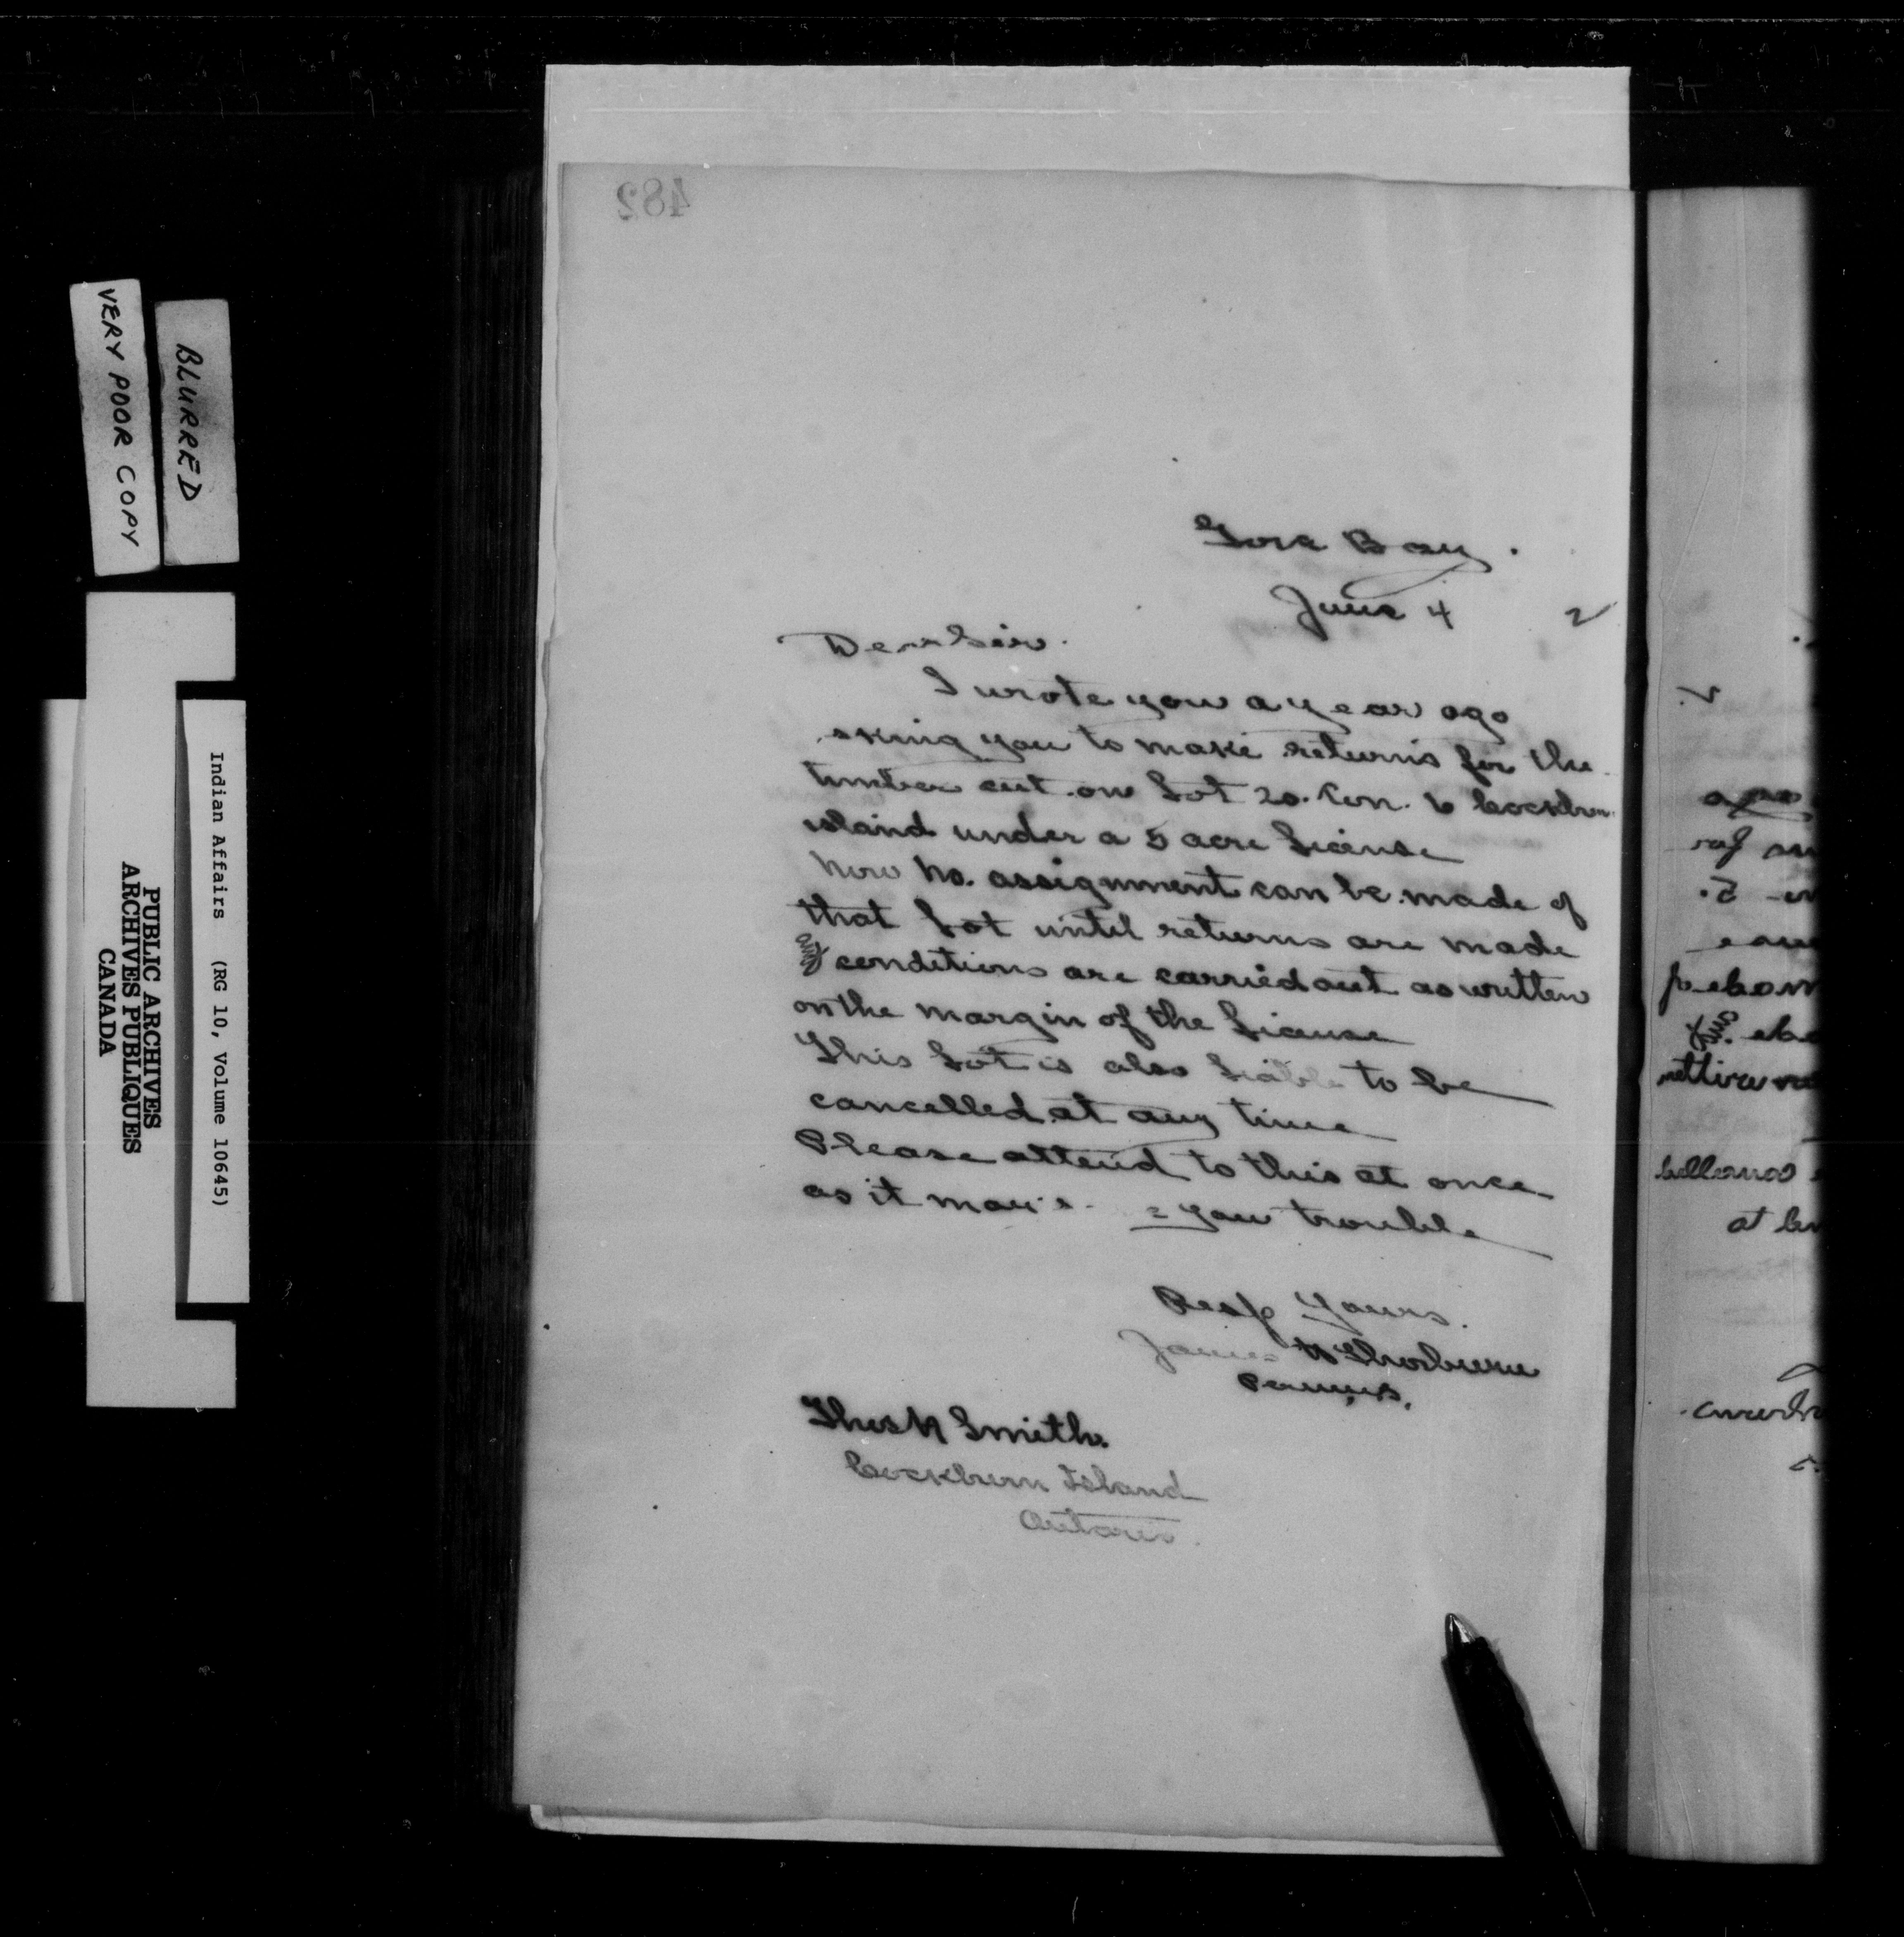 482
Gore Bay.
June 4 2
Dear Sir.
I wrote you a year ago
asking you to make returns for the
timber cut on Lot 20. Con. 6 Cockburn
island under a 5 acre License
Now no. assignment can be made of
that Lot until returns are made
and conditions are carried out as written
on the margin of the License
This Lot is also Liable to be
cancelled at any time
Please attend to this at once
as it may you trouble
Resp Yours.
James H Thorburn
Thos N Smith.
Cockburn Island
Ontario.
VERY POOR COPY
BLURRED
Indian Affairs (RG 10, Volume 10645)
PUBLIC ARCHIVES
ARCHIVES PUBLIQUES
CANADA